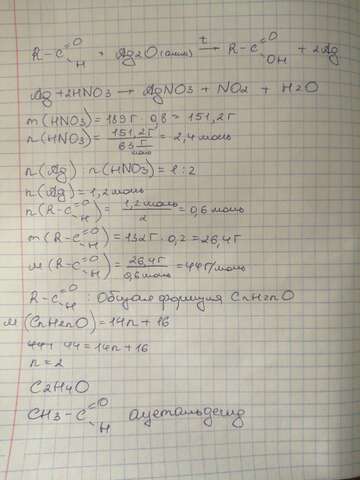 R-C=O H + Ag2O(амм) t→ R-C=O OH + 2Ag
Ag+2HNO3 → AgNO3 + NO2 + H2O
m(HNO3)=189г · 0,8 = 151,2г
n(HNO3)= 151,2г / 63 г/моль = 2,4моль
n(Ag) : n(HNO3)=1:2
n(Ag)=1,2моль
n(R-C=O H)= 1,2моль / 2 = 0,6моль
m(R-C=O H)=132г · 0,2=26,4г
M(R-C=O H)= 26,4г / 0,6моль =44г/моль
R-C=O H : Общая формула CnH2nO
M(CnH2nO)=14n+16
44=14n+16
n=2
C2H4O
CH3-C=O H ацетальдегид